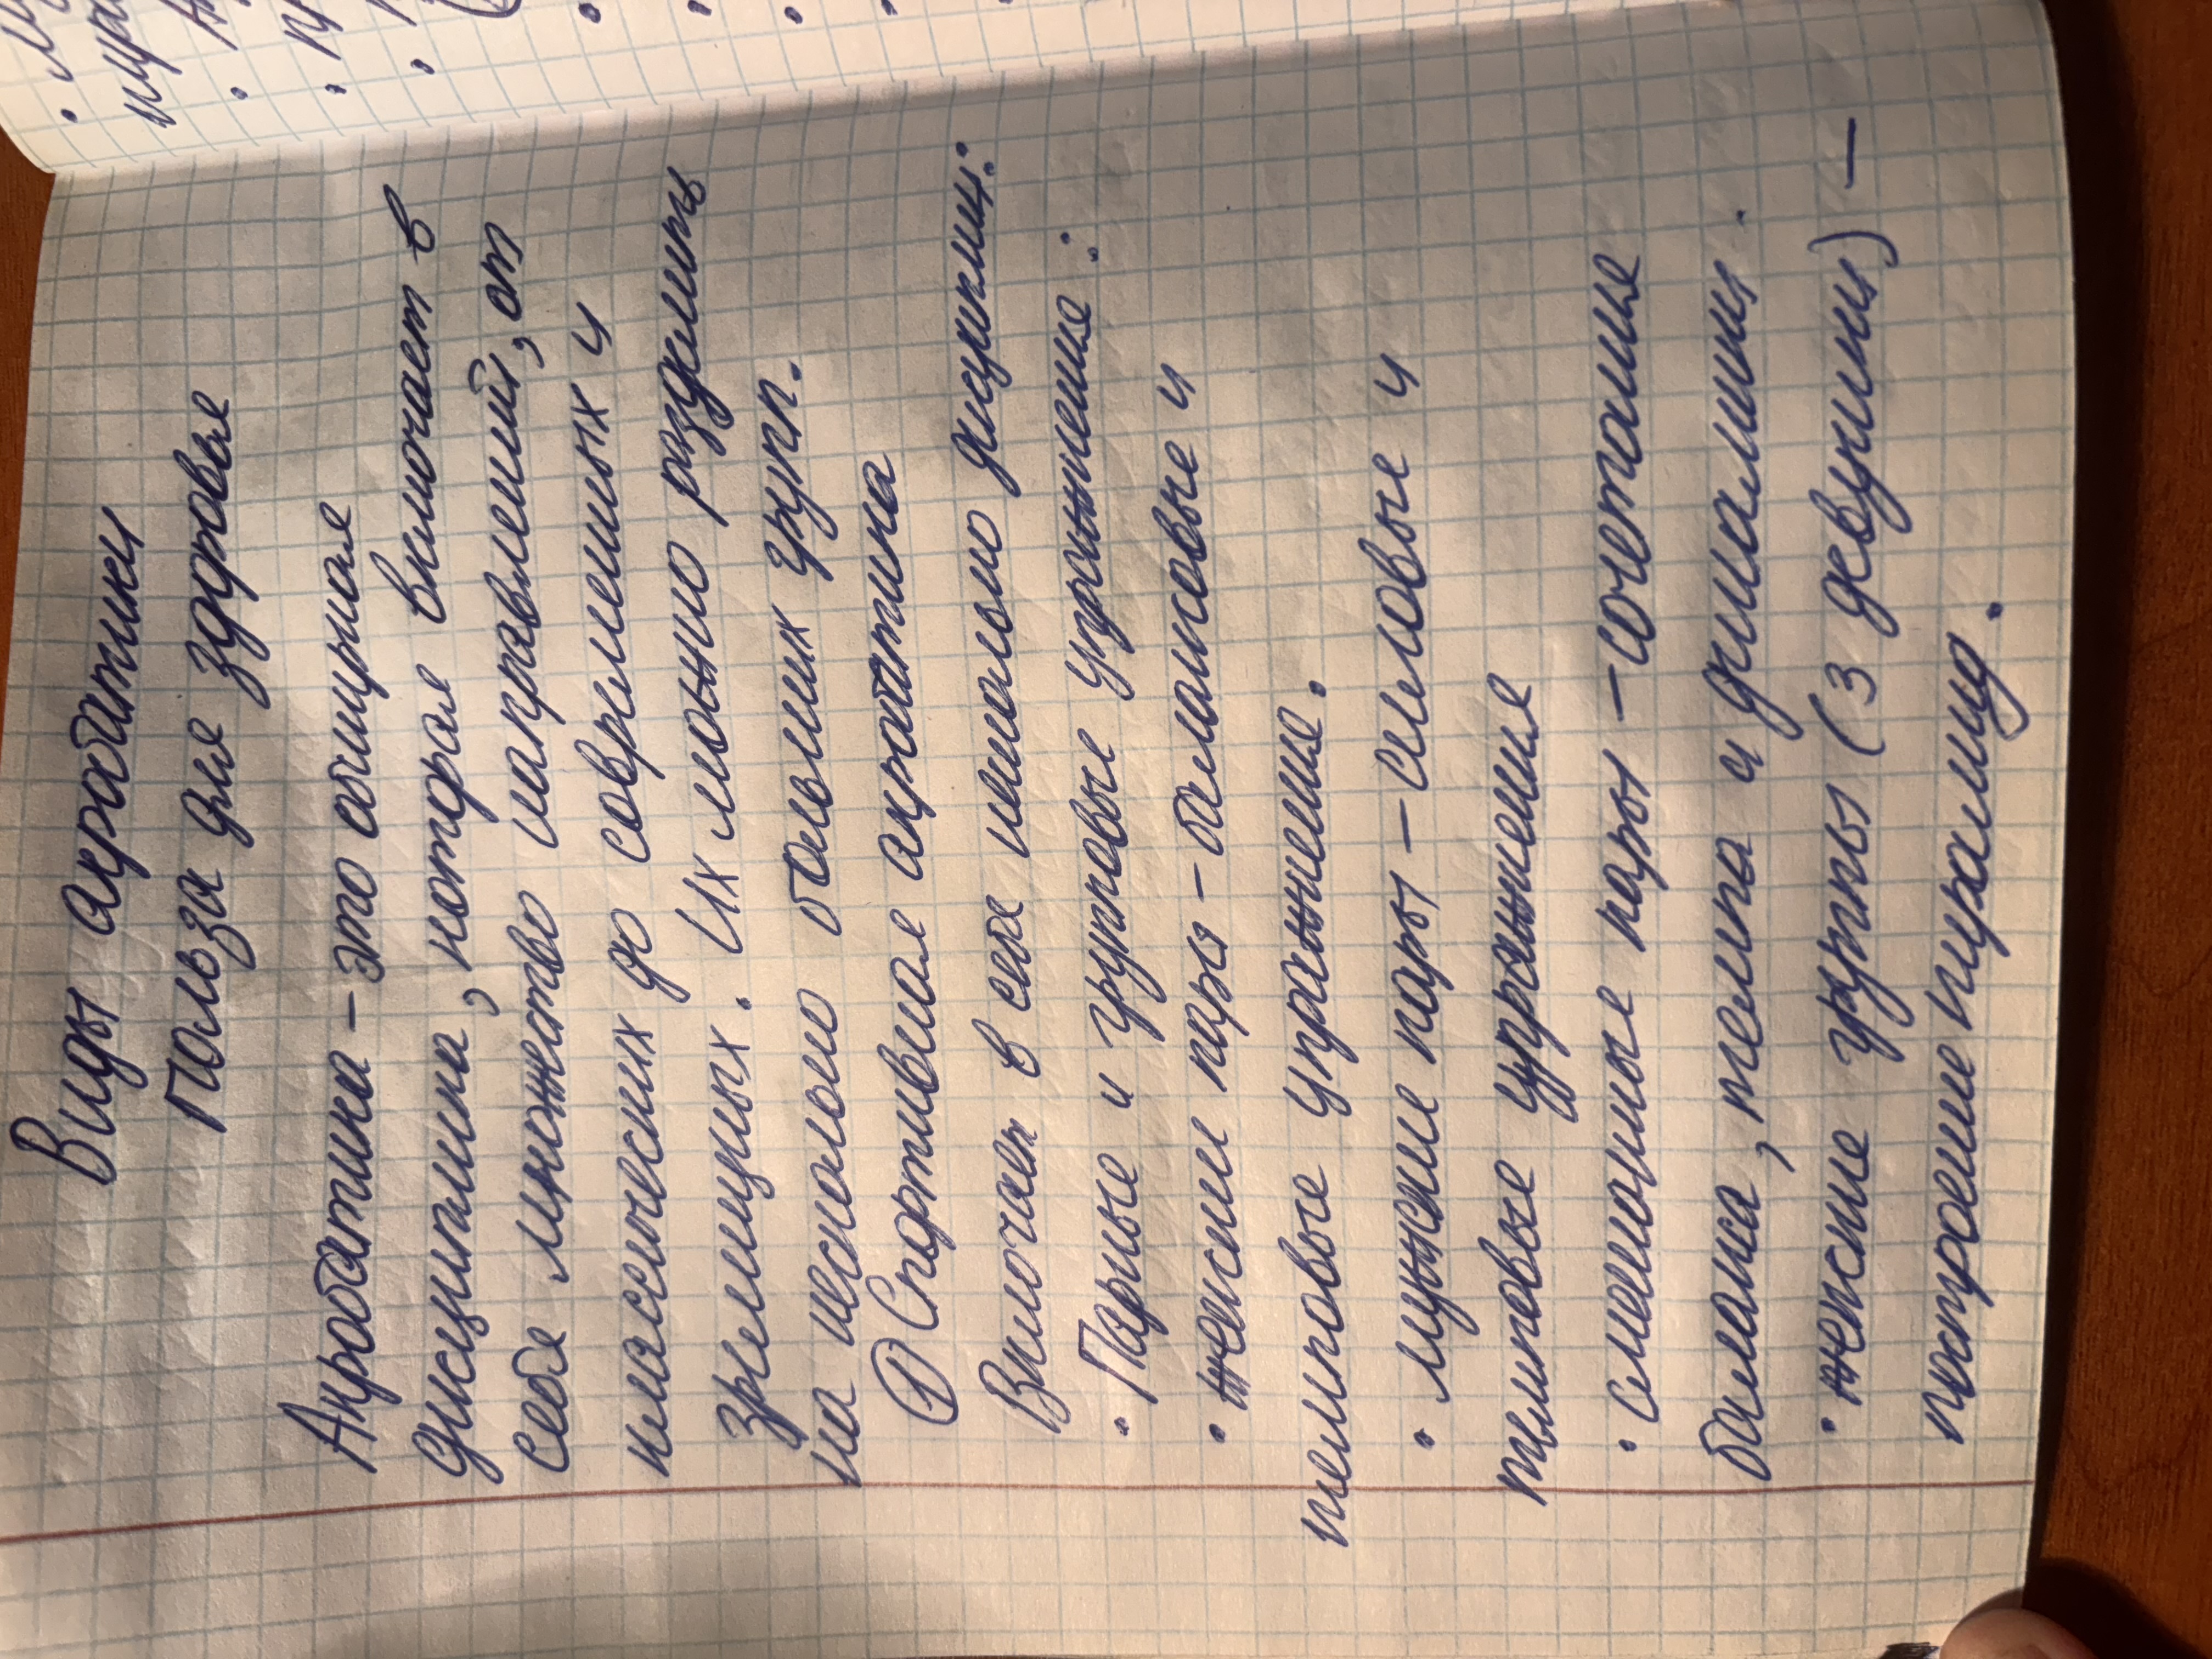 Виды акробатики
Польза для здоровья
Акробатика - это обширная
дисциплина, которая включает в
себя множество направлений, от
классических до современных и
зрелищных. Их можно разделить
на несколько больших групп.
① Спортивная акробатика
Включает в себя несколько дисциплин:
• Парные и групповые упражнения:
• женские пары - балансовые и
темповые упражнения.
• мужские пары - силовые и
темповые упражнения
• смешанные пары - сочетание
баланса, темпа и динамики.
• женские группы (3 девушки) -
построение пирамид.